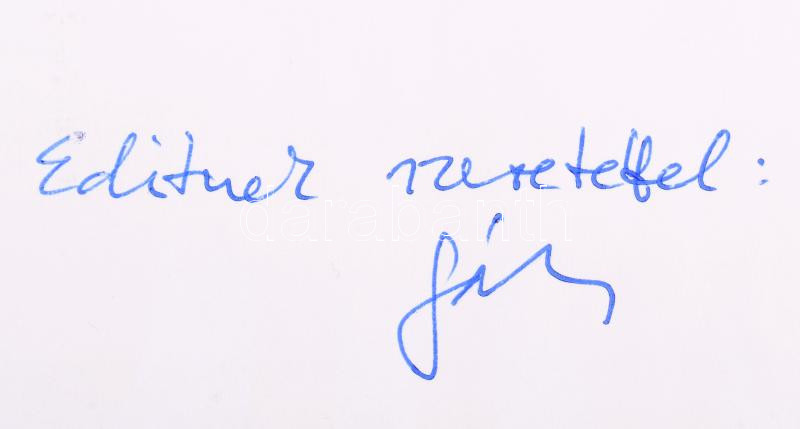 Editnek szeretettel:
darabanth